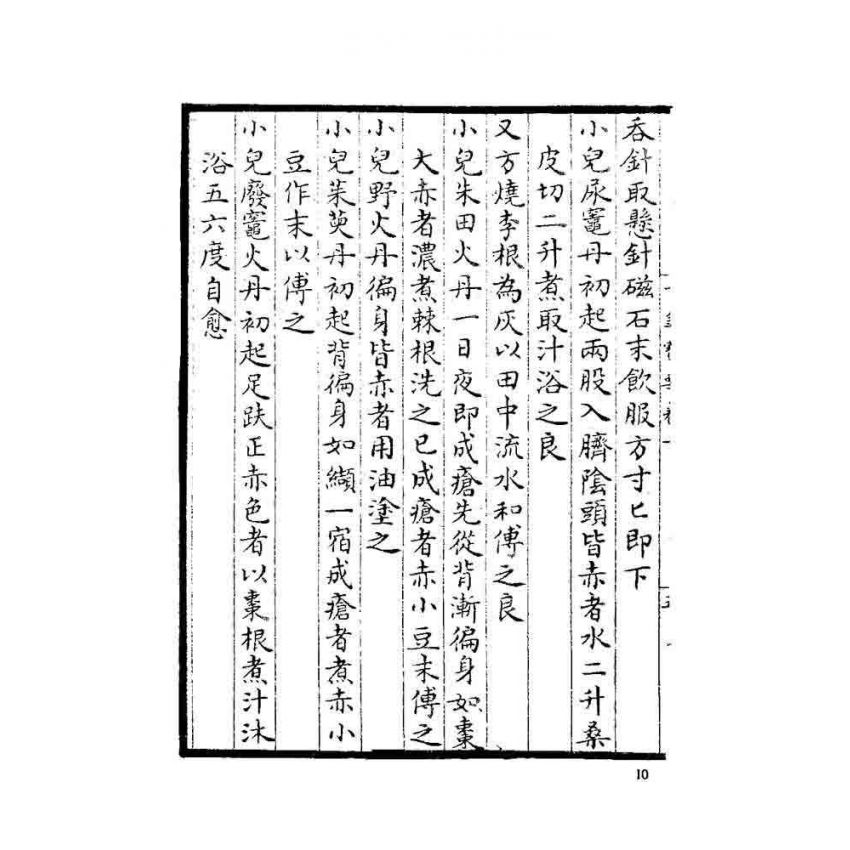 吞針取懸針磁石末飲服方寸匕即下
小兒尿竈丹初起兩股入臍陰頭皆赤者水二升桑
皮切二升煮取汁浴之良
又方燒李根為灰以田中流水和傅之良
小兒朱田火丹一日夜即成瘡先從背漸徧身如棗
大赤者濃煮棘根洗之已成瘡者赤小豆末傅之
小兒野火丹徧身皆赤者用油塗之
小兒茱萸丹初起背徧身如纈一宿成瘡者煮赤小
豆作末以傅之
小兒廢竈火丹初起足趺正赤色者以棗根煮汁沐
浴五六度自愈
10